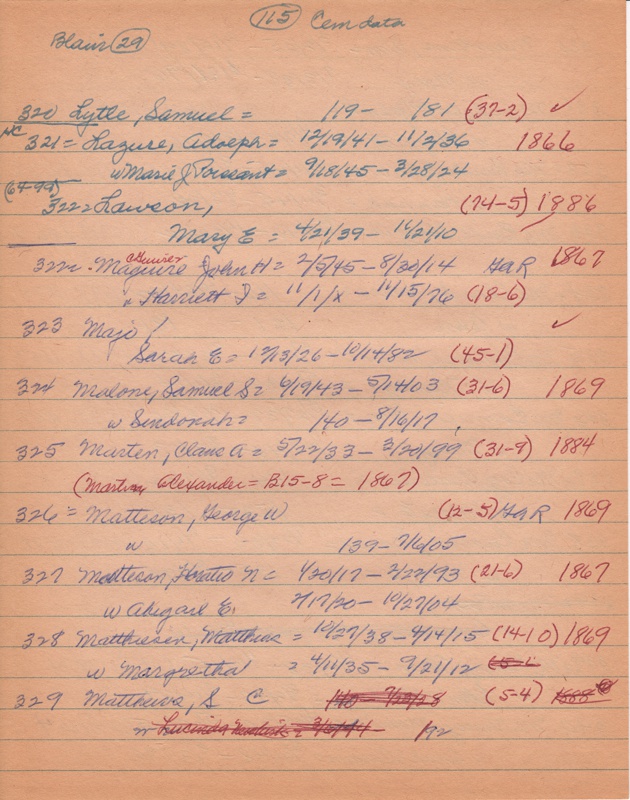 115 Cem data
Blair 29
320 Lytle, Samuel = /19 - /81 (37-2) ✓
NC
321 = Lazure, Adolph = 12/19/41 - 11/2/36 1866
w Marie J Poissant = 9/18/45 - 3/28/24
(64-99)
322 = Lawson, (74-5) 1886
Mary E = 4/21/39 - 11/21/10
322 - Maguire John H = 2/5/45 - 8/30/14 GaR 1867
w Harriett I = 11/1/x - 11/15/76 (18-6)
323 Majo / ✓
Sarah E = 12/13/26 - 10/14/82 (45-1)
324 Malone, Samuel S = 6/19/43 - 5/14/03 (31-6) 1869
w Sindonah = 140 - 8/16/17
325 Marten, Clave A = 5/22/33 - 3/20/99 (31-9) 1884
(Martin Alexander = B15-8 = 1867)
326 = Matteson, George W (12-5) GaR 1869
w 139 - 7/6/05
327 Matteson, Horatio N = 1/20/17 - 2/22/93 (21-6) 1867
w Abigail E. 2/17/20 - 10/27/04
328 Matthiesen, Matthias = 10/27/38 - 4/14/15 (1410) 1869
w Margretha = 4/11/35 - 9/21/12
329 Matthews, S C (5-4) 1888
w Lucinda /92